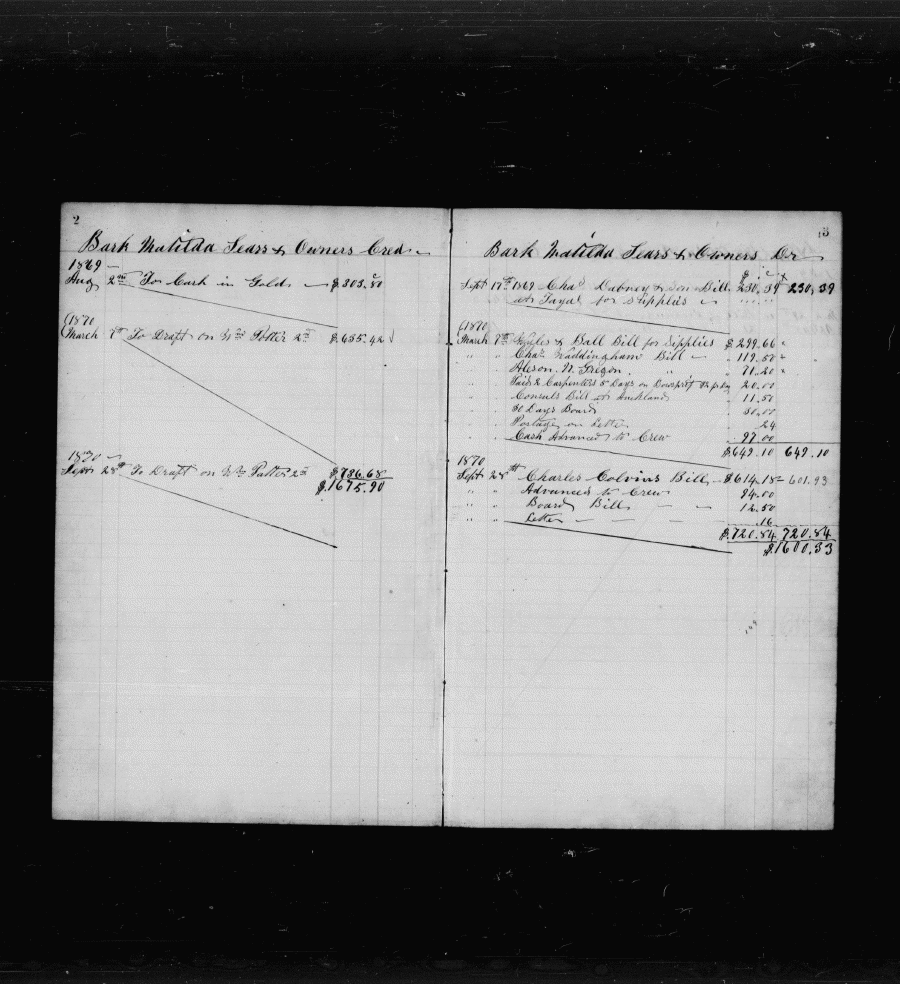 2
Bark Matilda Sears & Owners Cred
1869
Aug 2nd To Cash in Gold $303.80
1870
March 7th To Draft on Wm Potter 2nd $635.42
1870
Sept 28th To Draft on Wm Potter 2nd $736.68
$1675.90
3
Bark Matilda Sears & Owners Dr
$ c
Sept 17th 1869 Chas Dabney & Son Bill 230.39 230.39
at Fayal for Supplies
1870
March 7th & Ball Bill for Supplies $299.66
" " Chas Waddingham Bill 119.50
" " N. Grigon " 71.20
" " Paid 2 Carpenters 5 Days on Bowsprit 20.00
" " Consuls Bill at Auckland 11.50
" " 30 Days Board 30.00
" " Postage on Letter .24
" " Cash Advanced to Crew 97.00
$649.10 649.10
1870
Sept 28th Charles Colvins Bill $614.18 601.93
" " Advances to Crew 94.00
" " Board Bill 12.50
" " Letter .16
$720.84 720.84
$1600.33